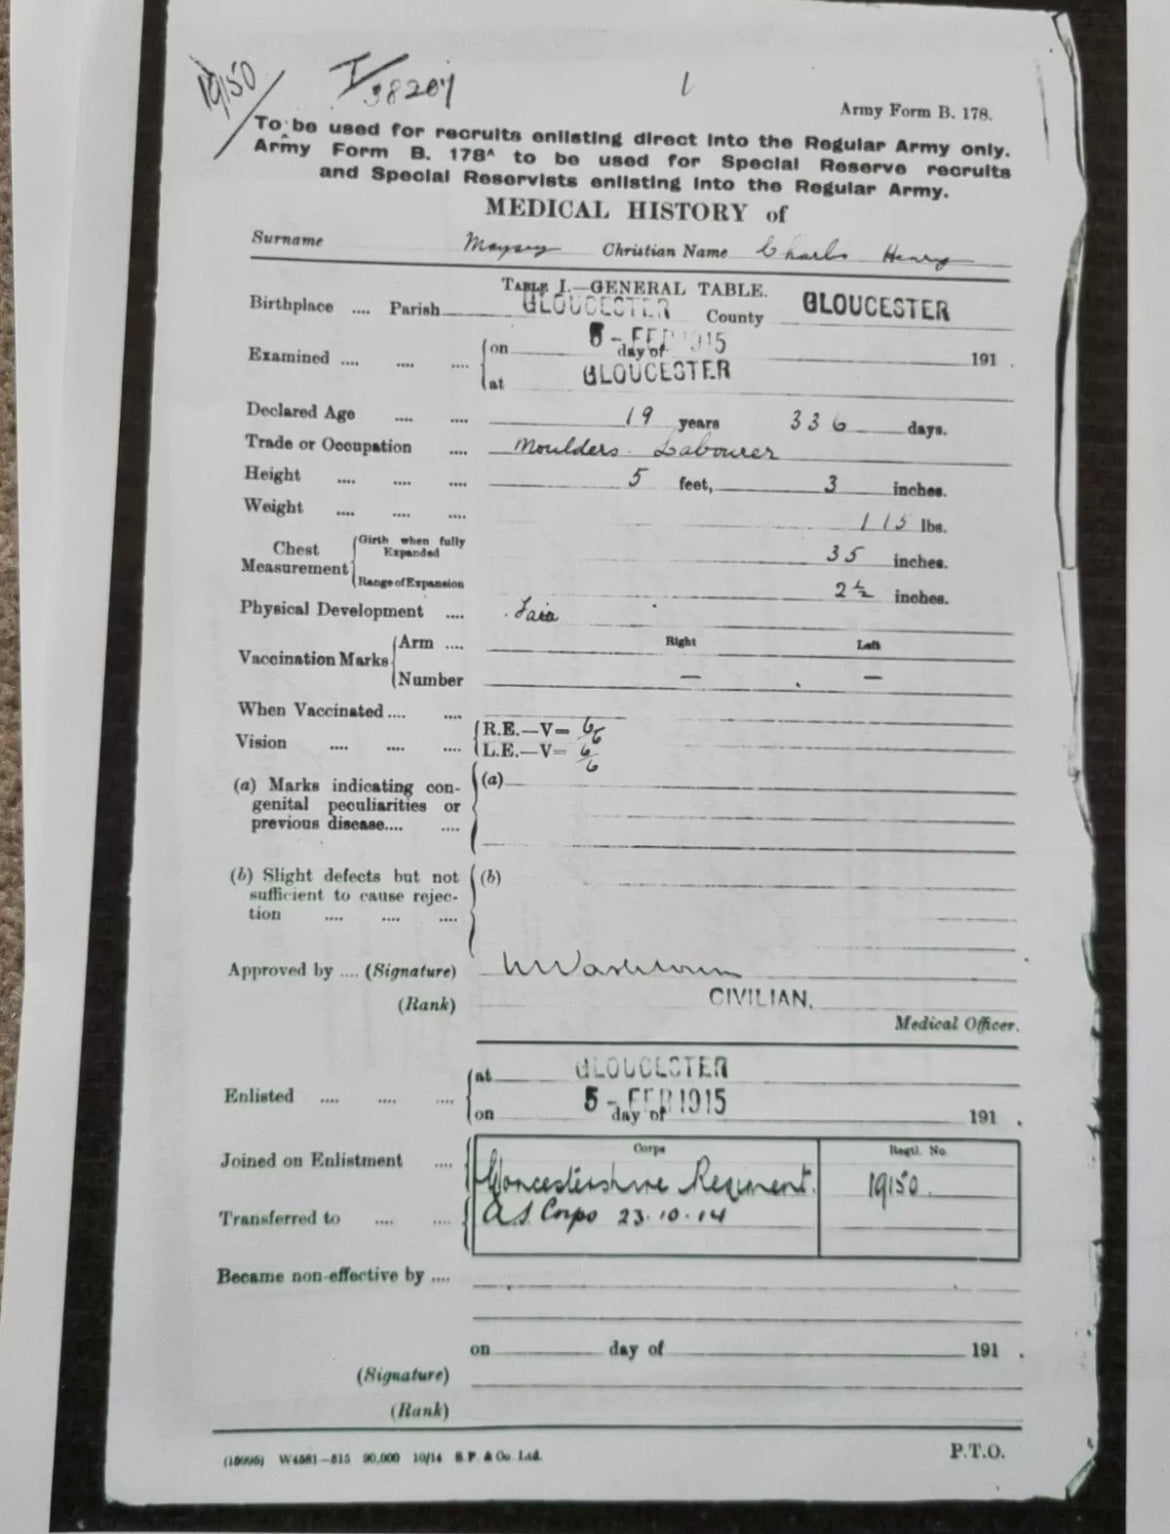 19150 T/38207 1
Army Form B. 178.
To be used for recruits enlisting direct into the Regular Army only.
Army Form B. 178A to be used for Special Reserve recruits
and Special Reservists enlisting into the Regular Army.
MEDICAL HISTORY of
Surname Maysey Christian Name Charles Henry
TABLE I.—GENERAL TABLE.
Birthplace .... Parish GLOUCESTER County GLOUCESTER
Examined .... .... .... on 5 - FEB 1915 day of 191 .
at GLOUCESTER
Declared Age .... .... 19 years 336 days.
Trade or Occupation .... Moulders Labourer
Height .... .... .... 5 feet, 3 inches.
Weight .... .... .... 115 lbs.
Chest Measurement Girth when fully Expanded 35 inches.
Range of Expansion 2½ inches.
Physical Development .... Fair
Vaccination Marks Arm .... Right Left
Number — —
When Vaccinated .... ....
Vision .... .... .... R.E.—V= 6/6
L.E.—V= 6/6
(a) Marks indicating con- (a)
genital peculiarities or
previous disease.... ....
(b) Slight defects but not (b)
sufficient to cause rejec-
tion .... .... ....
Approved by .... (Signature)
(Rank) CIVILIAN.
Medical Officer.
Enlisted .... .... .... at GLOUCESTER
on 5 - FEB 1915 day of 191 .
Corps Regtl. No.
Joined on Enlistment .... Worcestershire Regiment. 19150.
Transferred to .... .... A.S. Corps 23.10.14
Became non-effective by ....
on day of 191 .
(Signature)
(Rank)
W4581—515 90,000 10/14 S.P. & Co. Ltd.
P.T.O.